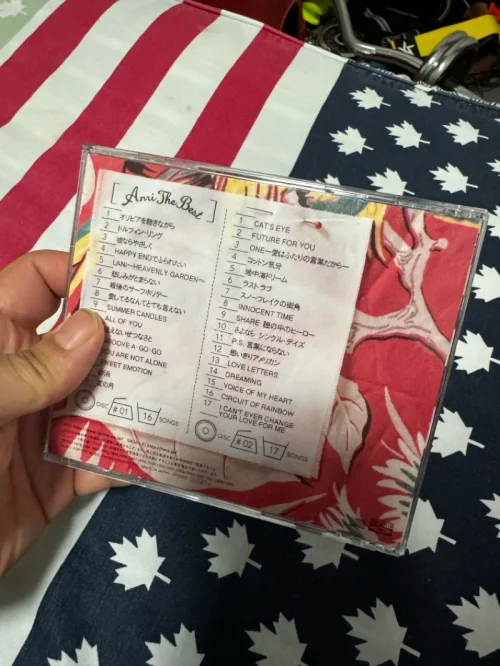 Anri The Best
1 オリビアを聴きながら
2 ドルフィン・リング
3 嘘ならやさしく
4 HAPPY ENDでふられたい
5 LANI〜HEAVENLY GARDEN〜
6 悲しみがとまらない
7 最後のサーフホリデー
8 愛してるなんてとても言えない
9 SUMMER CANDLES
ALL OF YOU
えないせつなさと
OOVE A・GO・GO
U ARE NOT ALONE
WEET EMOTION
の月
DISC #01 16 SONGS
1 CAT'S EYE
2 FUTURE FOR YOU
3 ONE―愛はふたりの言葉だから―
4 コットン気分
5 地中海ドリーム
6 ラスト ラブ
7 スノーフレイクの街角
8 INNOCENT TIME
9 SHARE 瞳の中のヒーロー
10 さよなら シングル・デイズ
11 P.S. 言葉にならない
12 想いきりアメリカン
13 LOVE LETTERS
14 DREAMING
15 VOICE OF MY HEART
16 CIRCUIT OF RAINBOW
17 I CAN'T EVER CHANGE
YOUR LOVE FOR ME
DISC #02 17 SONGS